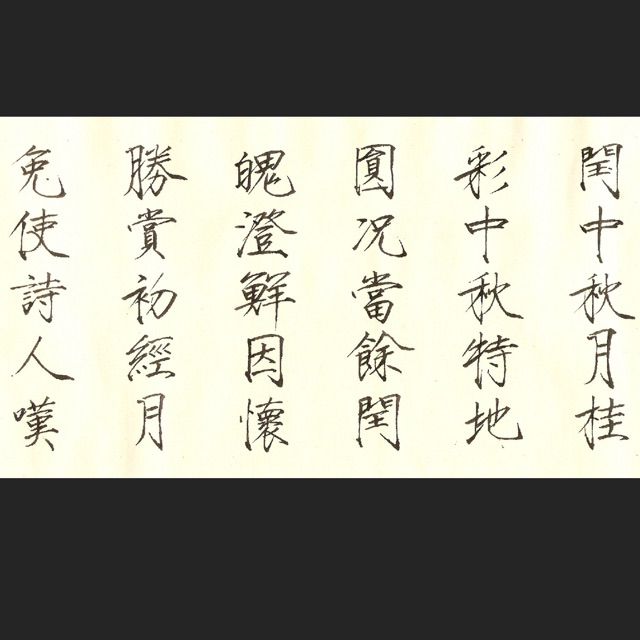 閏中秋月桂
彩中秋特地
圓况當餘閏
魄澄鮮因懷
勝賞初經月
免使詩人嘆